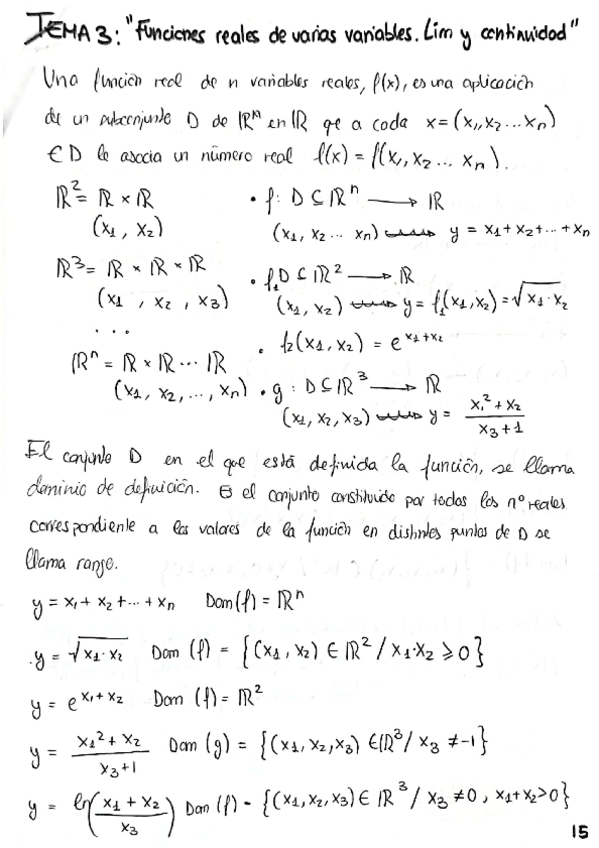 TEMA 3: "Funciones reales de varias variables. Lim y continuidad"
Una función real de n variables reales, f(x), es una aplicación
de un subconjunto D de ℝⁿ en ℝ qe a cada x=(x₁,x₂...xₙ)
∈ D le asocia un número real f(x) = f(x₁, x₂ ... xₙ).
ℝ² = ℝ × ℝ
(x₁, x₂)
ℝ³ = ℝ × ℝ × ℝ
(x₁, x₂, x₃)
...
ℝⁿ = ℝ × ℝ ... ℝ
(x₁, x₂, ..., xₙ)
• f: D ⊆ ℝⁿ → ℝ
(x₁, x₂ ... xₙ) ⇝ y = x₁+x₂+...+xₙ
• f₁ D ⊆ ℝ² → ℝ
(x₁, x₂) ⇝ y = f₁(x₁,x₂) = √x₁·x₂
• f₂(x₁, x₂) = e^x₁+x₂
• g : D ⊆ ℝ³ → ℝ
(x₁, x₂, x₃) ⇝ y = x₁² + x₂ / x₃ + 1
El conjunto D en el que está definida la función, se llama
dominio de definición. El conjunto constituido por todos los nº reales
correspondiente a los valores de la función en distintos puntos de D se
llama rango.
y = x₁ + x₂ + ... + xₙ Dom(f) = ℝⁿ
y = √x₁·x₂ Dom (f) = {(x₁, x₂) ∈ ℝ² / x₁·x₂ ⩾ 0}
y = e^x₁+x₂ Dom (f) = ℝ²
y = x₁² + x₂ / x₃+1 Dom (g) = {(x₁, x₂, x₃) ∈ ℝ³ / x₃ ≠ -1}
y = ln(x₁ + x₂ / x₃) Dom (f) = {(x₁, x₂, x₃) ∈ ℝ³ / x₃ ≠ 0, x₁+x₂>0}
15